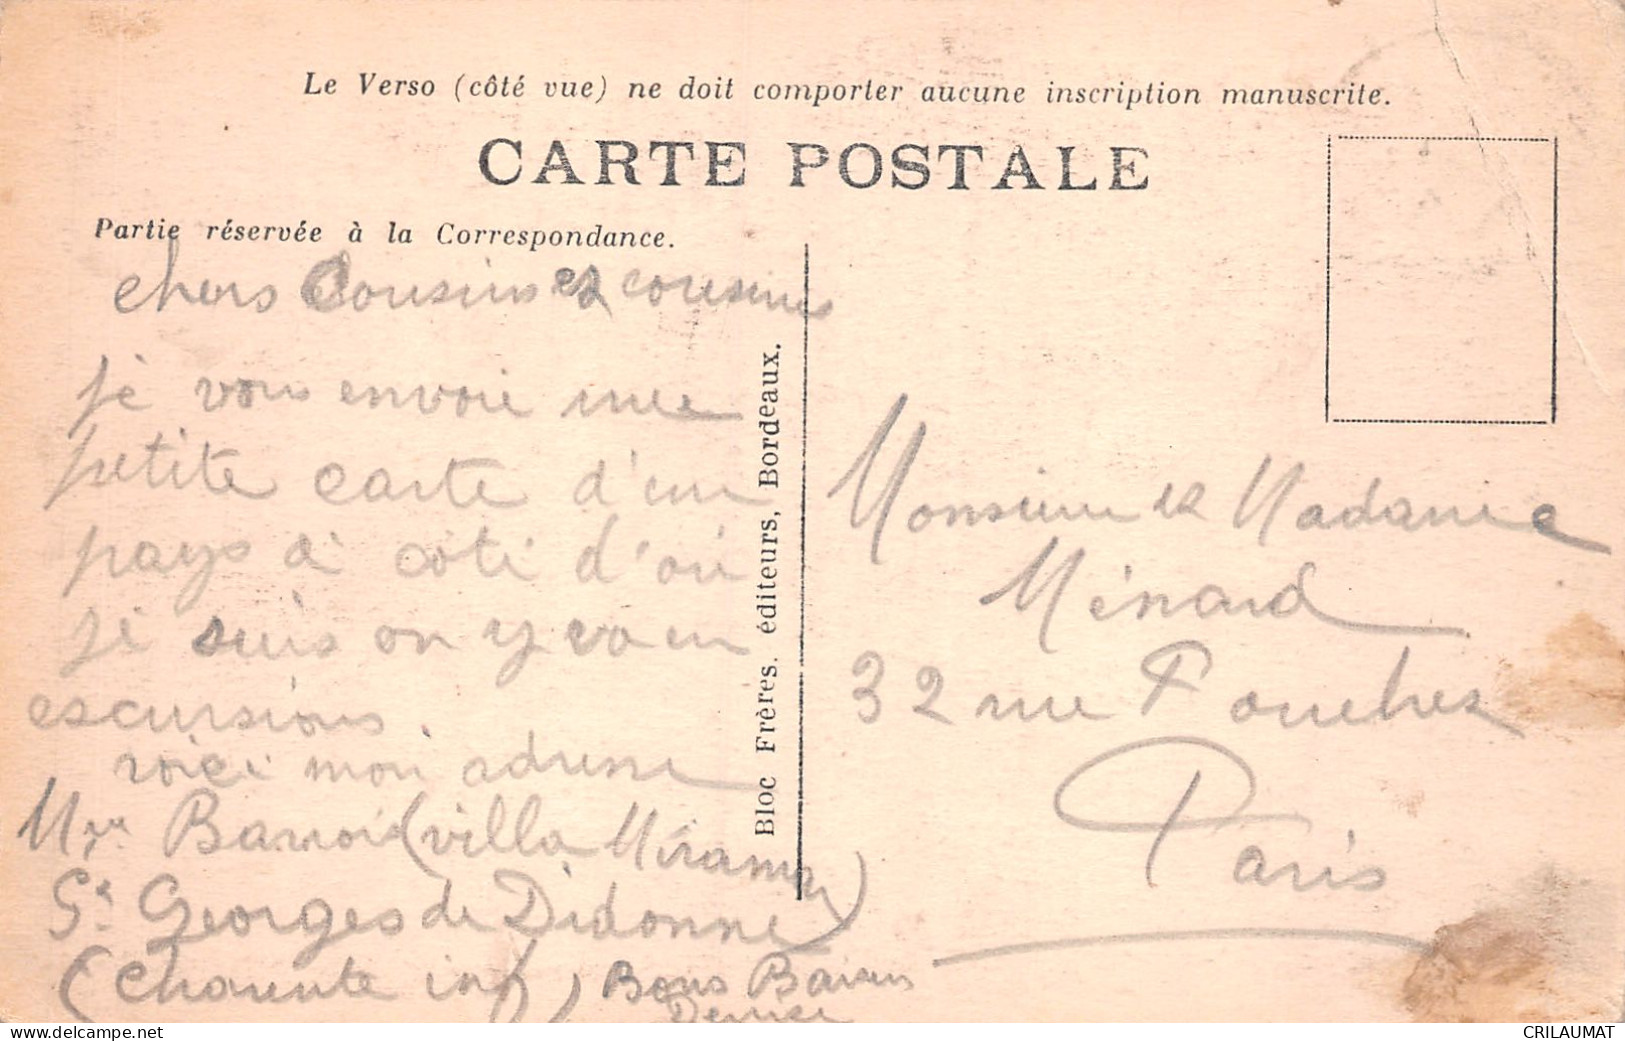 Le Verso (côté vue) ne doit comporter aucune inscription manuscrite.
CARTE POSTALE
Partie réservée à la Correspondance.
chers Cousins et cousines
je vous envoie une
petite carte d'un
pays à coté d'où
je suis on y va en
escursions.
voici mon adresse
Mr (villa Miramar)
St Georges de Didonne
(Charente inf) Bons Baisers
Bloc Frères. éditeurs, Bordeaux.
Monsieur et Madame
Ménard
32 rue
Paris
www.delcampe.net
CRILAUMAT